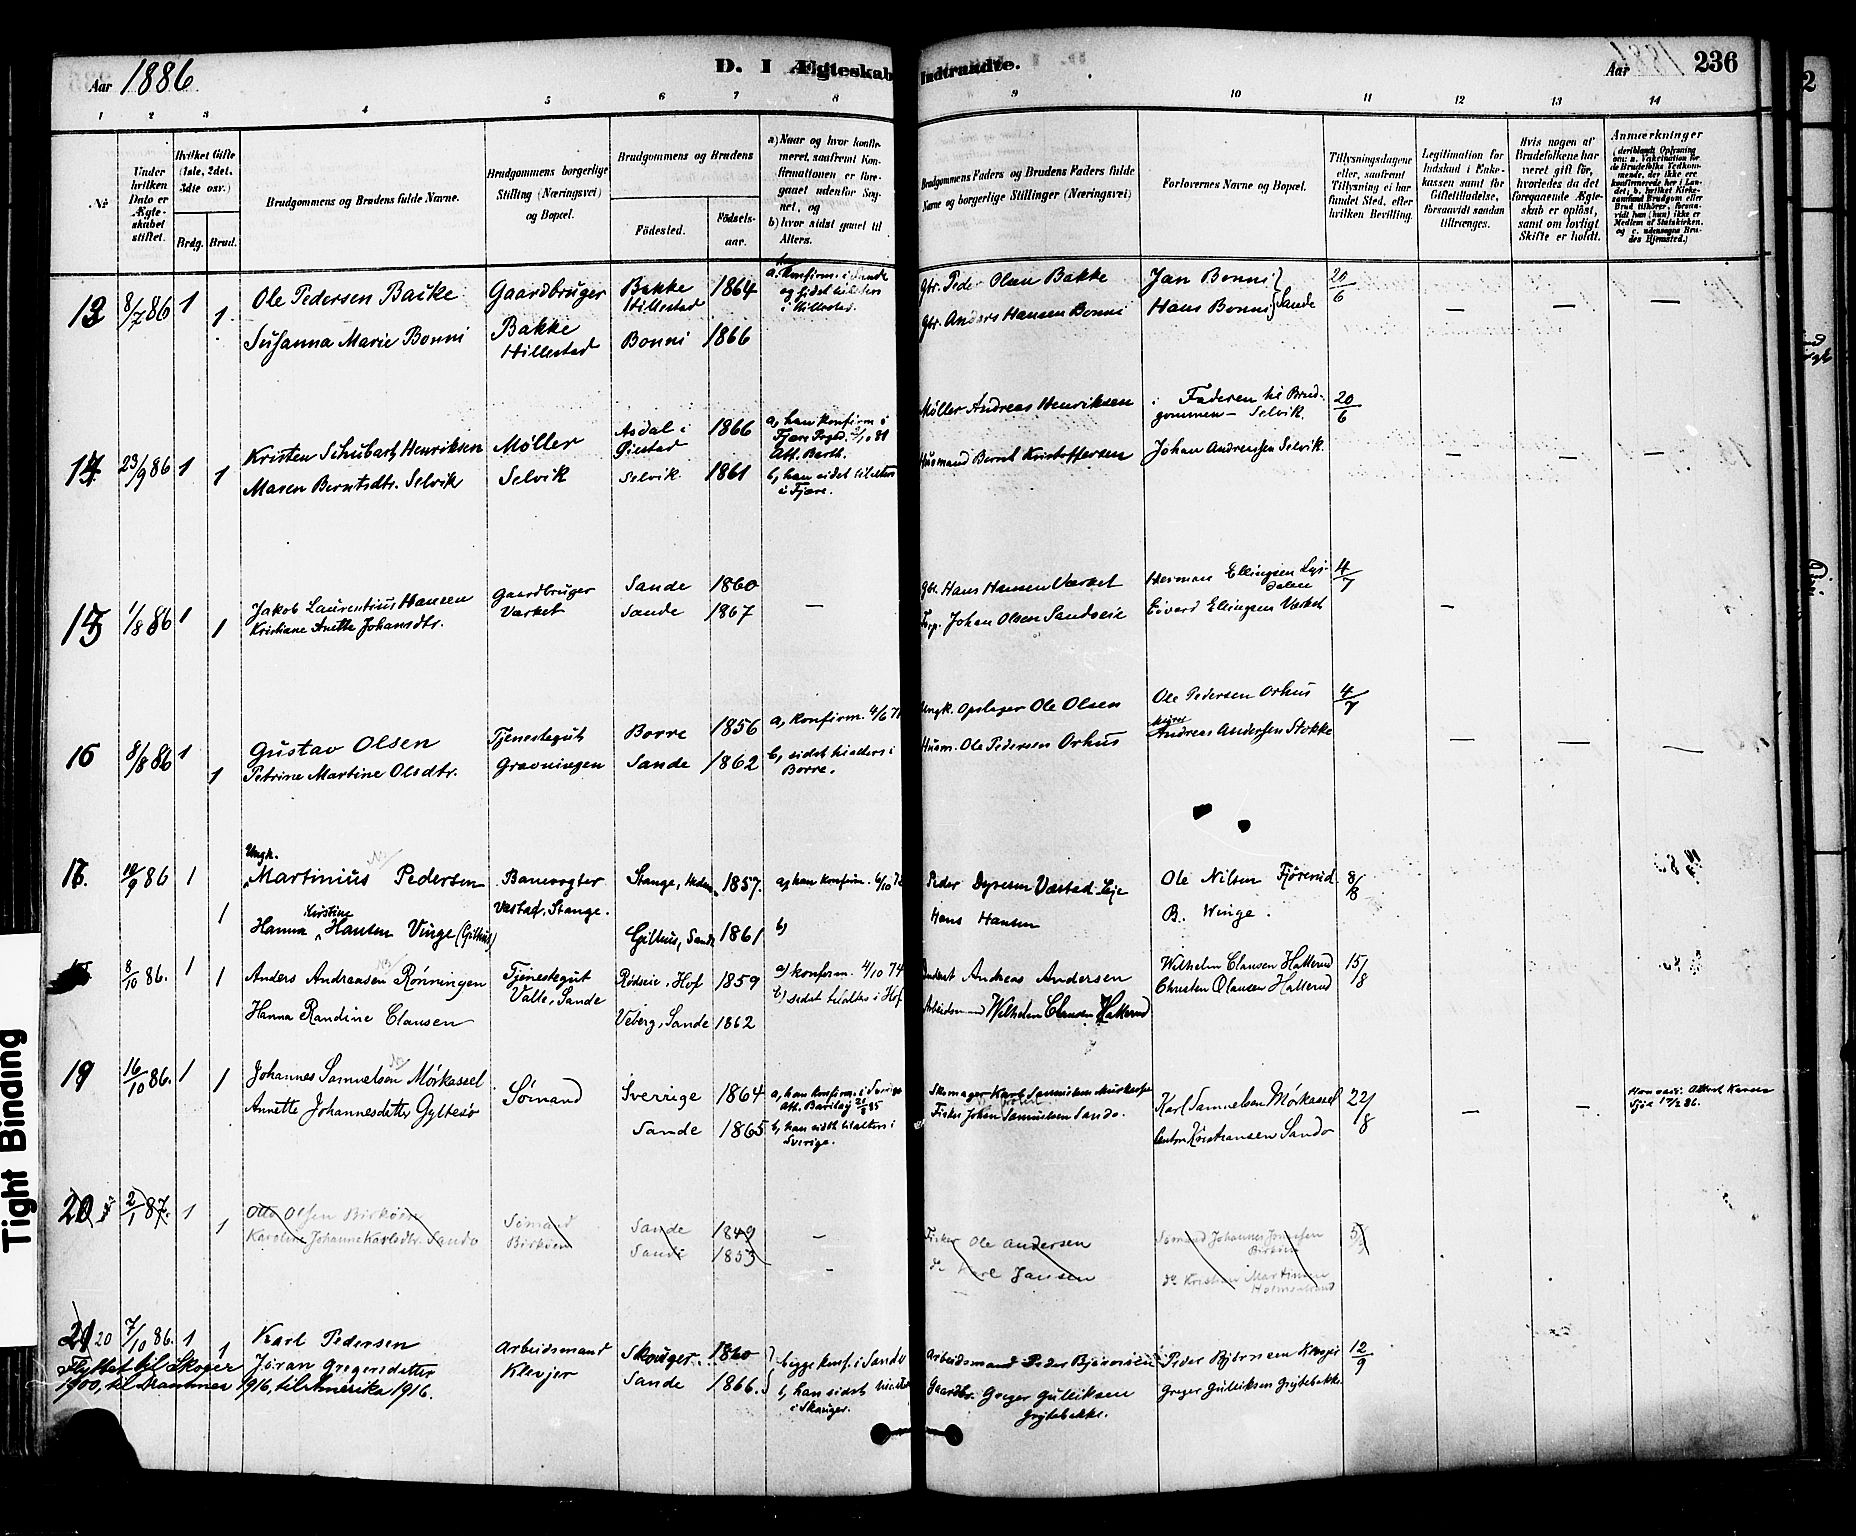 Aar 1886.
D. I Ægteskab Indtraadte.
Aar
236
1 2 3 4 5 6 7 8 9 10 11 12 13 14
No
Under hvilken Dato er Ægteskabet stiftet.
Hvilket Gifte (1ste, 2det, 3die osv.)
Brdg. Brud.
Brudgommens og Brudens fulde Navne.
Brudgommens borgerlige Stilling (Næringsvei) og Bopæl.
Brudgommens og Brudens
Fødested.
Fødselsaar.
a) Naar og hvor konfirmeret, saafremt Konfirmationen er foregaaet udenfor Sognet, og
b) hvor sidst gaaet til Alters.
Brudgommens Faders og Brudens Faders fulde Navne og borgerlige Stillinger (Næringsvei)
Forlovernes Navne og Bopæl.
Tillysningsdagene eller, saafremt Tillysning ei har fundet Sted, efter hvilken Bevilling.
Legitimation for Indskud i Enkekassen samt for Giftetilladelse, forsaavidt saadan tiltrænges.
Hvis nogen af Brudefolkene har været gift før, hvorledes da det foregaaende Ægteskab er opløst, samt om lovligt Skifte er holdt.
Anmærkninger
13 8/7 86 1 1.
Ole Pedersen Bakke
Susanna Marie Bonni
Gaardbruger
Bakke
Hillestad
Bakke 1864
Hillestad
Bonni 1866
a. konfirm. i Sande
og sidst tilalters
i Hillestad.
Gbr. Peder Olsen Bakke
Gbr. Anders Hansen Bonni
Jan Bonni
Hans Bonni } Sande
20/6
14 23/9 86 1 1
Kristen Schubart Henriksen
Maren Berntsdtr. Selvik
Møller
Selvik
Asdal i 1866
Øiestad
Selvik 1861
a, han konfirm i
Fjære
Att. Berth.
b, han sidst tilalters
i Fjære.
Møller Andreas Henriksen
Husmand Bernt Kristoffersen
Faderen til Brudgommen – Selvik
Johan Andreassen Selvik.
20/6
15 1/8 86 1 1
Jakob Laurentius Hansen
Kristiane Anette Johansdtr.
Gaardbruger
Værket
Sande 1860
Sande 1867
Gbr. Hans Hansen Værket
Johan Olsen Sandseie
Herman Ellingsen
Eivard Ellingsen Værket
4/7
16 8/8 86 1 1
Gustav Olsen
Petrine Martine Olsdtr.
Tjenestegut
Gravningen
Borre 1856
Sande 1862
a, konfirm. 4/6 71
b, sidst tilalters i
Borre.
Ungk. Opslager Ole Olsen
Husm. Ole Pedersen Orhus
Ole Pedersen Orhus
Andreas Andersen Stokke
4/7
17. 12/9 86 1 1
Ungk.
Martinius Pedersen
Kirstine
Hanna Hansen Vinge (Gilhus)
Banevogter
Væstad, Stange.
Stange, Hedm. 1857.
Gilhus, Sande 1861
a) han konfirm. 6/10 72
b)
Peder Væstad
Hans Hansen
Ole Nilsen Fjørerud
B. Winge.
8/8
8/10 86. 1 1
Anders Andreasen Rønningen
Hanna Randine Clausen
Tjenestegut
Valle, Sande
Rødseie, Hof 1859
Veberg, Sande 1862
a) konfirm. 4/10 74
b) sidst tilalters i Hof
Andreas Andersen
Arbeidsmand Wilhelm Clausen Hatterud
Wilhelm Clausen Hatterud
Christen Olausen Hatterud
15/8
19 16/10 86. 1 1
Johannes Samuelsen Mørkassel
Annette Johannesdatter Gyltesø
Sømand
Sverrige 1864
Sande 1865
a, han konfirm. i Sverige
b, han sidst tilalters i
Sverige.
Skomager Karl Samuelsen
Fisker Johan Samuelsen Sando.
Karl Samuelsen Mørkassel
Kristiansen Sando
22/8
20 2/1 87. 1 1
Otto Olsen Birkøen
Karoline Johanne Karlsdtr. Sando
Sømand
Birkøen
Sande 1849
Sande 1853
Fisker Ole Andersen
do Karl Jansen
Sømand Johannes
Birkøen
do Kristian Martinsen
Holmestrand
21 20 7/10 86. 1 1
Karl Pedersen
Jøran Gregersdatter
Flyttet til Skoger
1900, til Drammen 1916, til Amerika 1916.
Arbeidsmand
Klevjer
Skouger 1860
Sande 1866.
begge konf. i Sande
b, han sidst tilalters
i Skouger.
Arbeidsmand Peder Bjørnsen
Gaardbr. Greger Gulliksen
Grytebakke.
Peder Bjørnsen Klevjer
Greger Gulliksen Grytebakke.
12/9
Tight Binding